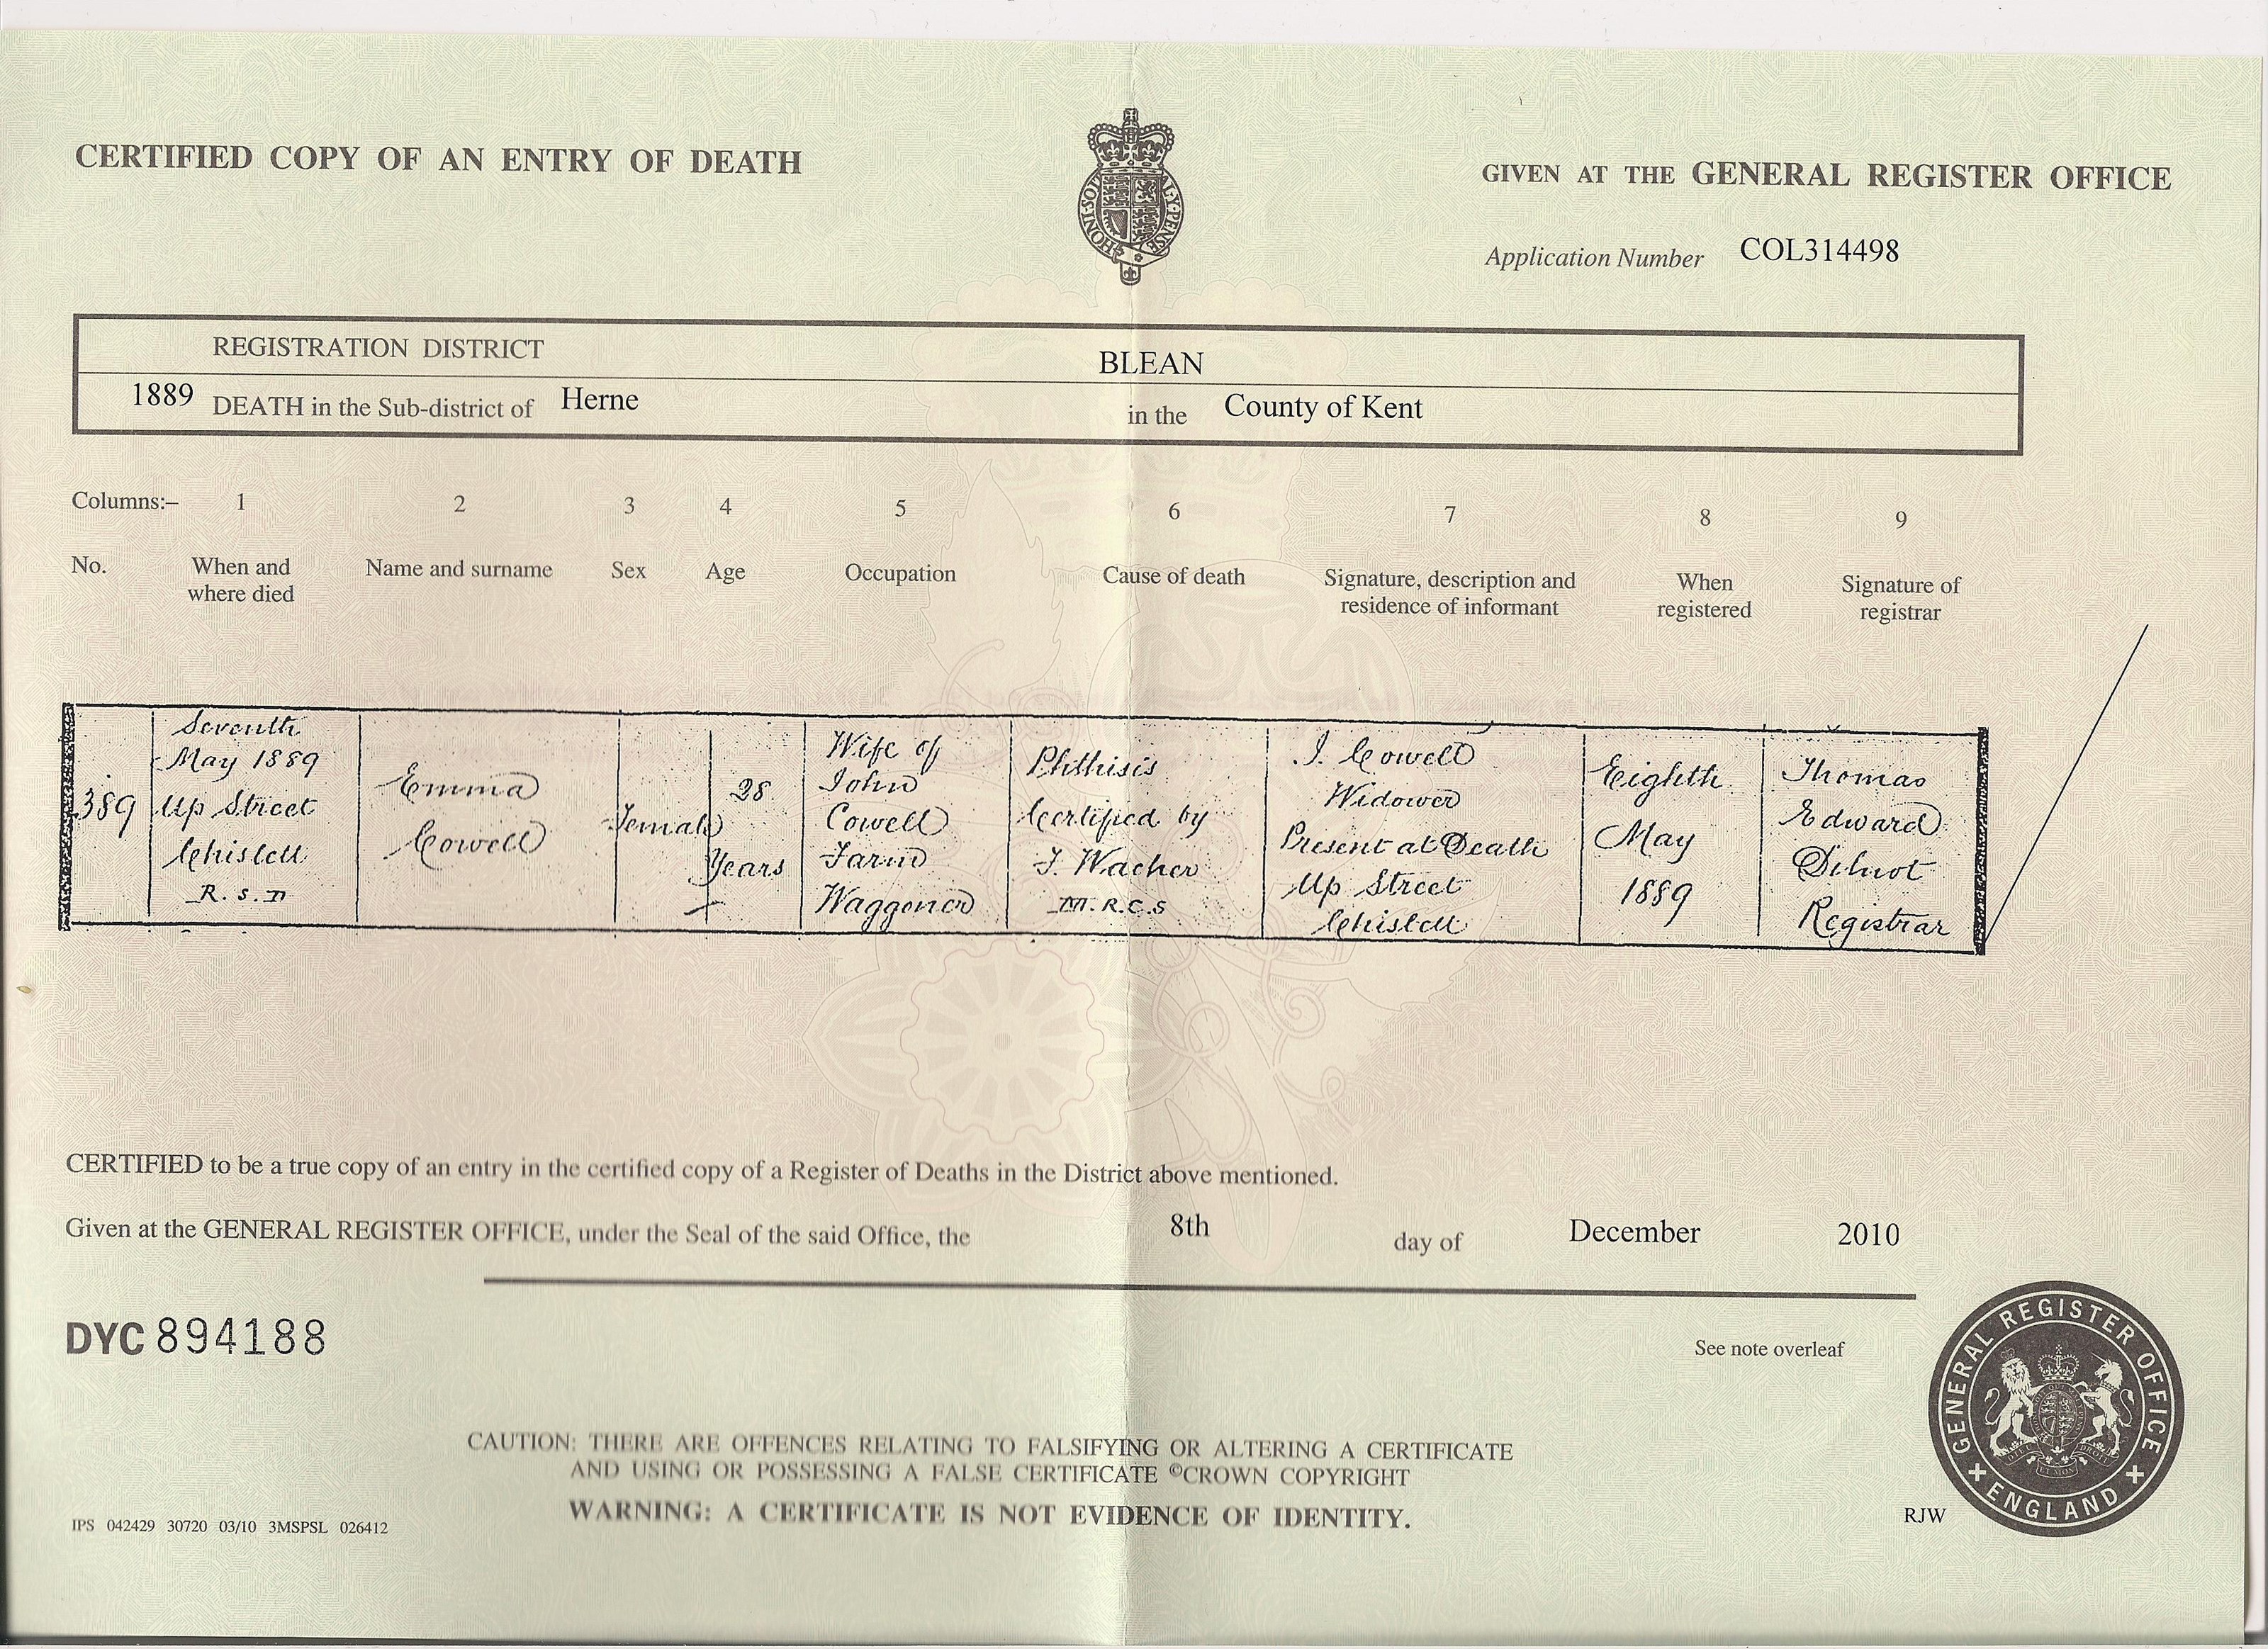 CERTIFIED COPY OF AN ENTRY OF DEATH
GIVEN AT THE GENERAL REGISTER OFFICE
Application Number COL314498
REGISTRATION DISTRICT BLEAN
1889 DEATH in the Sub-district of Herne in the County of Kent
Columns:– 1 2 3 4 5 6 7 8 9
No.
When and
where died
Name and surname
Sex
Age
Occupation
Cause of death
Signature, description and
residence of informant
When
registered
Signature of
registrar
389
Seventh
May 1889
Up Street
Chislett
R.S.D
Emma
Cowell
Female
28
Years
Wife of
John
Cowell
Farm
Waggoner
Phthisis
Certified by
T. Wacher
M.R.C.S
J. Cowell
Widower
Present at Death
Up Street
Chislett
Eighth
May
1889
Thomas
Edward
Dilnot
Registrar
CERTIFIED to be a true copy of an entry in the certified copy of a Register of Deaths in the District above mentioned.
Given at the GENERAL REGISTER OFFICE, under the Seal of the said Office, the 8th day of December 2010
DYC 894188
See note overleaf
CAUTION: THERE ARE OFFENCES RELATING TO FALSIFYING OR ALTERING A CERTIFICATE
AND USING OR POSSESSING A FALSE CERTIFICATE ©CROWN COPYRIGHT
WARNING: A CERTIFICATE IS NOT EVIDENCE OF IDENTITY.
IPS 042429 30720 03/10 3MSPSL 026412
RJW
GENERAL REGISTER OFFICE
ENGLAND